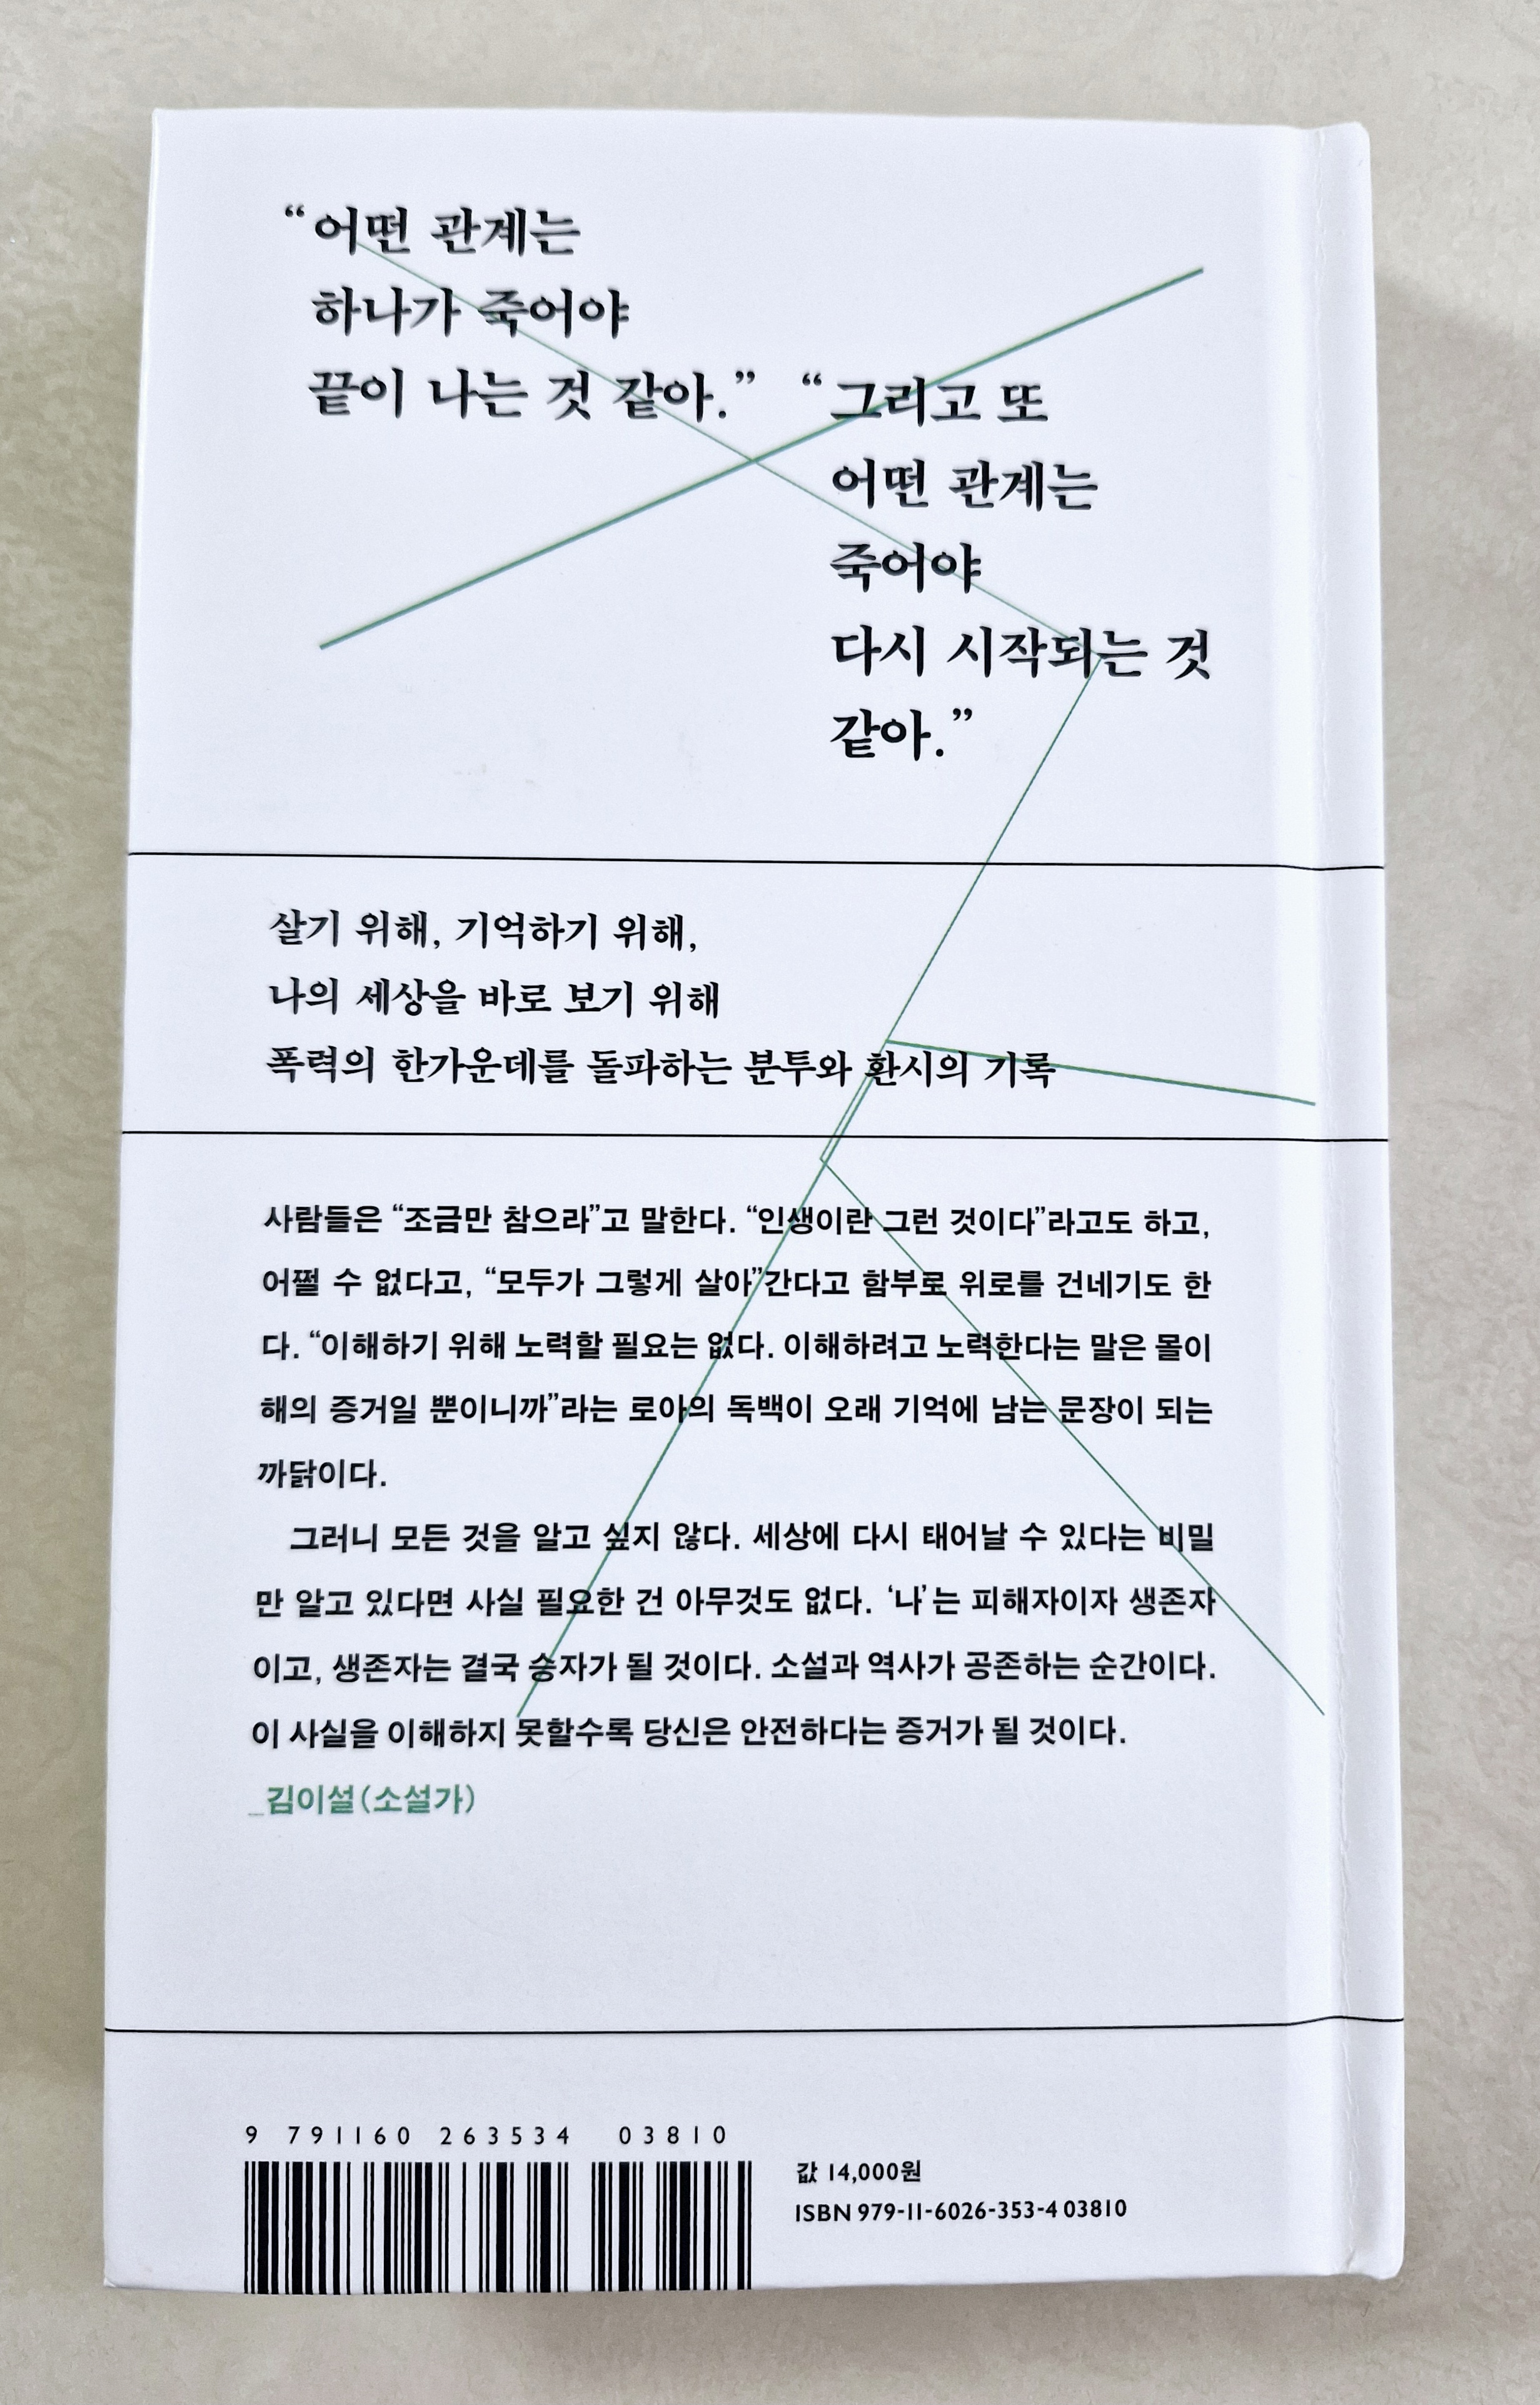 “어떤 관계는
하나가 죽어야
끝이 나는 것 같아.”
“그리고 또
어떤 관계는
죽어야
다시 시작되는 것
같아.”
살기 위해, 기억하기 위해,
나의 세상을 바로 보기 위해
폭력의 한가운데를 돌파하는 분투와 환시의 기록
사람들은 “조금만 참으라”고 말한다. “인생이란 그런 것이다”라고도 하고,
어쩔 수 없다고, “모두가 그렇게 살아”간다고 함부로 위로를 건네기도 한
다. “이해하기 위해 노력할 필요는 없다. 이해하려고 노력한다는 말은 몰이
해의 증거일 뿐이니까”라는 로아의 독백이 오래 기억에 남는 문장이 되는
까닭이다.
그러니 모든 것을 알고 싶지 않다. 세상에 다시 태어날 수 있다는 비밀
만 알고 있다면 사실 필요한 건 아무것도 없다. ‘나’는 피해자이자 생존자
이고, 생존자는 결국 승자가 될 것이다. 소설과 역사가 공존하는 순간이다.
이 사실을 이해하지 못할수록 당신은 안전하다는 증거가 될 것이다.
_김이설(소설가)
9 791160 263534 03810
값 14,000원
ISBN 979-11-6026-353-4 03810